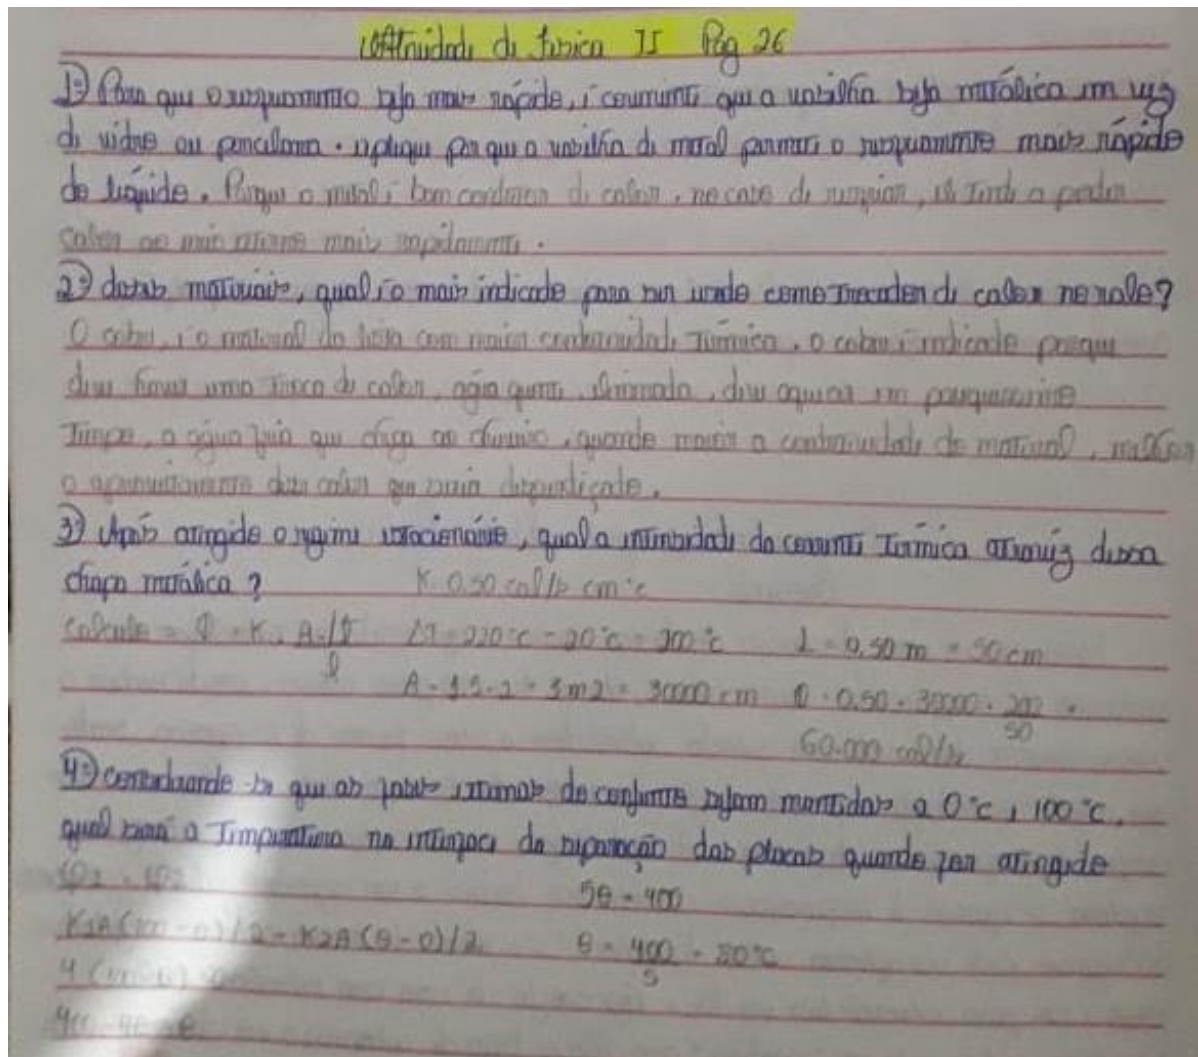 Atividade de física II Pag 26
1º) Para que o resfriamento seja mais rápido, é conveniente que a vasilha seja metálica em vez
de vidro ou porcelana. explique por que a vasilha de metal permite o resfriamento mais rápido
do líquido. Porque o metal é bom condutor de calor, no caso de resfriar, ele tende a perder
calor ao meio externo mais rapidamente.
2º) desses materiais, qual é o mais indicado para ser usado como trocador de calor no ralo?
O cobre, é o material da lista com maior condutividade térmica, o cobre é indicado porque
deve haver uma troca de calor, água quente, eliminada, deve aquecer em pouquíssimo
Tempo, a água fria que chega ao chuveiro, quando maior a condutividade do material, melhor
o aproveitamento desse calor que seria desperdiçado.
3º) Após atingido o regime estacionário, qual a intensidade da corrente Térmica através dessa
chapa metálica? K. 0,50 cal/s cm °c
Calcule = K . A. ΔT = 220°c - 20°c = 200°c = 0,50 m = 50 cm
l A = 1.5 . 2 = 3 m2 = 30000 cm 0.50 . 30000 . 200
50
60.000 cal/s
4º) considerando-se que as faces externas do conjunto sejam mantidas a 0°c e 100°c,
qual será a Temperatura na interface da separação das placas quando for atingido
5θ = 400
K2A (θ-0)/2 θ = 400 = 80°c
5
4